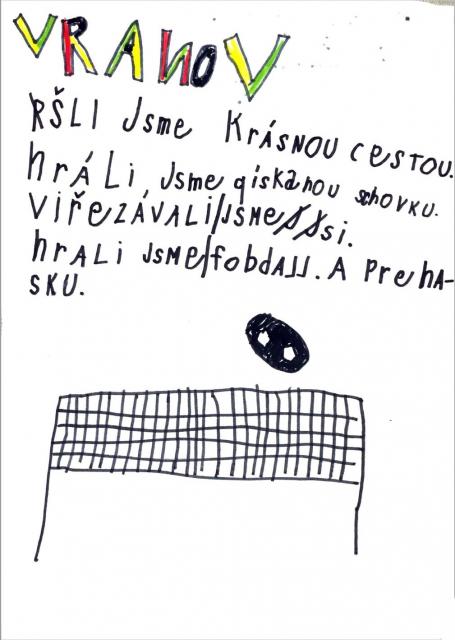 VRANOV
RŠLI Jsme KrÁSNOU CeSTOU.
hrÁLi, Jsme qískanou schovKU.
ViŘeZÁVALi JSMe si.
hrALi JSMe fobdAll. A PrehA-
SKU.